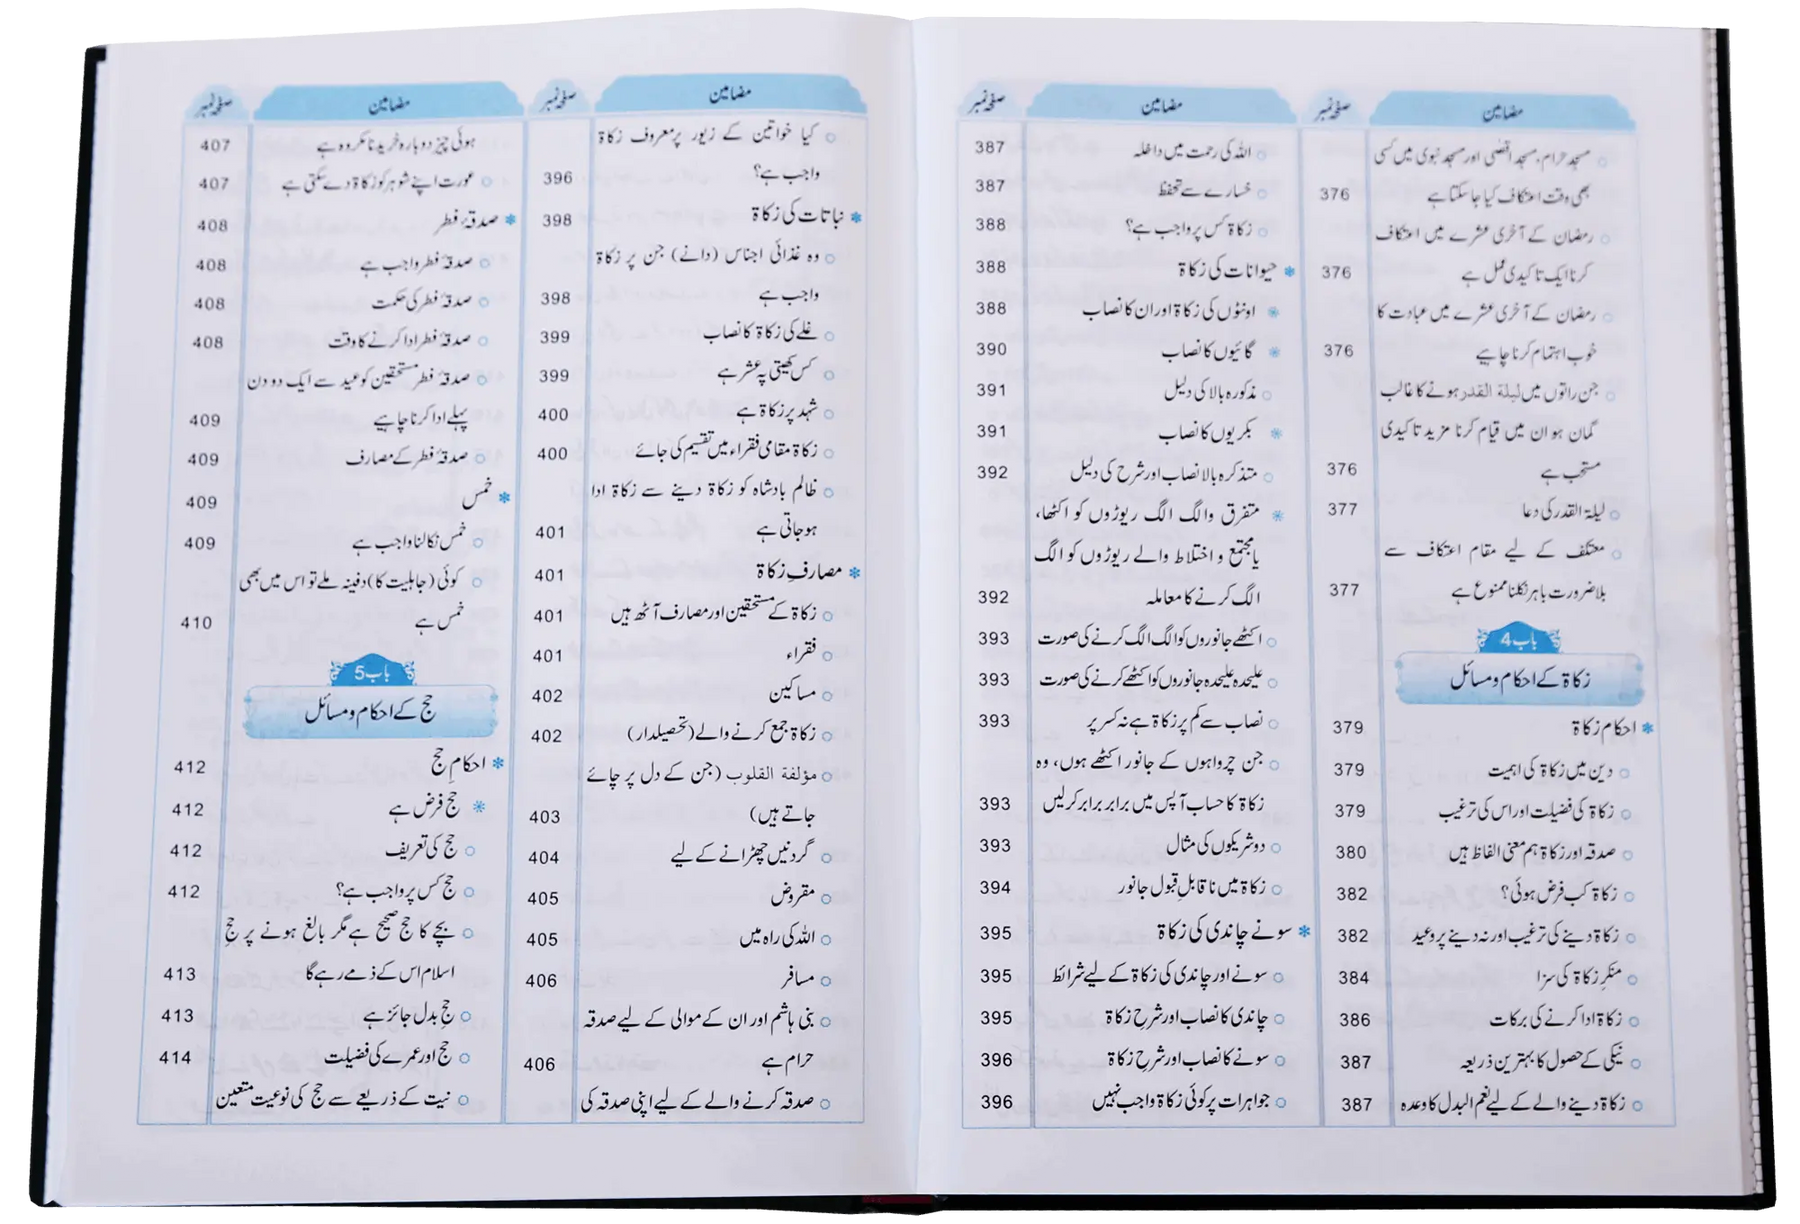 مضامین صفحہ نمبر
مسجد حرام، مسجد اقصٰی اور مسجد نبوی میں کسی
بھی وقت اعتکاف کیا جا سکتا ہے 376
رمضان کے آخری عشرے میں اعتکاف
کرنا ایک تاکیدی عمل ہے 376
رمضان کے آخری عشرے میں عبادت کا
خوب اہتمام کرنا چاہیے 376
جن راتوں میں لیلة القدر ہونے کا غالب
گمان ہو ان میں قیام کرنا مزید تاکیدی
مستحب ہے 376
لیلۃ القدر کی دعا 377
معتکف کے لیے مقام اعتکاف سے
بلا ضرورت باہر نکلنا ممنوع ہے 377
باب 4
زکاۃ کے احکام و مسائل
احکام زکاۃ 379
دین میں زکاۃ کی اہمیت 379
زکاۃ کی فضیلت اور اس کی ترغیب 379
صدقہ اور زکاۃ ہم معنی الفاظ ہیں 380
زکاۃ کب فرض ہوئی؟ 382
زکاۃ دینے کی ترغیب اور نہ دینے پر وعید 382
منکرِ زکاۃ کی سزا 384
زکاۃ ادا کرنے کی برکات 386
نیکی کے حصول کا بہترین ذریعہ 387
زکاۃ دینے والے کے لیے نعم البدل کا وعدہ 387
مضامین صفحہ نمبر
اللہ کی رحمت میں داخلہ 387
خسارے سے تحفظ 387
زکاۃ کس پر واجب ہے؟ 388
حیوانات کی زکاۃ 388
اونٹوں کی زکاۃ اور ان کا نصاب 388
گائیوں کا نصاب 390
مذکورہ بالا کی دلیل 391
بکریوں کا نصاب 391
متذکرہ بالا نصاب اور شرح کی دلیل 392
متفرق والگ الگ ریوڑوں کو اکٹھا،
یا مجتمع و اختلاط والے ریوڑوں کو الگ
الگ کرنے کا معاملہ 392
اکٹھے جانوروں کو الگ الگ کرنے کی صورت 393
علیحدہ علیحدہ جانوروں کو اکٹھے کرنے کی صورت 393
نصاب سے کم پر زکاۃ ہے نہ کسر پر 393
جن چرواہوں کے جانور اکٹھے ہوں، وہ
زکاۃ کا حساب آپس میں برابر برابر کر لیں 393
دو شریکوں کی مثال 393
زکاۃ میں ناقابلِ قبول جانور 394
سونے چاندی کی زکاۃ 395
سونے اور چاندی کی زکاۃ کے لیے شرائط 395
چاندی کا نصاب اور شرحِ زکاۃ 395
سونے کا نصاب اور شرحِ زکاۃ 396
جواہرات پر کوئی زکاۃ واجب نہیں 396
مضامین صفحہ نمبر
کیا خواتین کے زیور پر معروف زکاۃ
واجب ہے؟ 396
نباتات کی زکاۃ 398
وہ غذائی اجناس (دانے) جن پر زکاۃ
واجب ہے 398
غلے کی زکاۃ کا نصاب 399
کس کھیتی پہ عشر ہے 399
شہد پر زکاۃ ہے 400
زکاۃ مقامی فقراء میں تقسیم کی جائے 400
ظالم بادشاہ کو زکاۃ دینے سے زکاۃ ادا
ہو جاتی ہے 401
مصارفِ زکاۃ 401
زکاۃ کے مستحقین اور مصارف آٹھ ہیں 401
فقراء 401
مساکین 402
زکاۃ جمع کرنے والے (تحصیلدار) 402
مؤلفة القلوب (جن کے دل پر چائے
جاتے ہیں) 403
گردنیں چھڑانے کے لیے 404
مقروض 405
اللہ کی راہ میں 405
مسافر 406
بنی ہاشم اور ان کے موالی کے لیے صدقہ
حرام ہے 406
صدقہ کرنے والے کے لیے اپنی صدقہ کی
مضامین صفحہ نمبر
ہوئی چیز دوبارہ خریدنا مکروہ ہے 407
عورت اپنے شوہر کو زکاۃ دے سکتی ہے 407
صدقۂ فطر 408
صدقۂ فطر واجب ہے 408
صدقۂ فطر کی حکمت 408
صدقۂ فطر ادا کرنے کا وقت 408
صدقۂ فطر مستحقین کو عید سے ایک دو دن
پہلے ادا کرنا چاہیے 409
صدقۂ فطر کے مصارف 409
خمس 409
خمس نکالنا واجب ہے 409
کوئی (جاہلیت کا) دفینہ ملے تو اس میں بھی
خمس ہے 410
باب 5
حج کے احکام و مسائل
احکامِ حج 412
حج فرض ہے 412
حج کی تعریف 412
حج کس پر واجب ہے؟ 412
بچے کا حج صحیح ہے مگر بالغ ہونے پر حجِ
اسلام اس کے ذمے رہے گا 413
حجِ بدل جائز ہے 413
حج اور عمرے کی فضیلت 414
نیت کے ذریعے سے حج کی نوعیت متعین